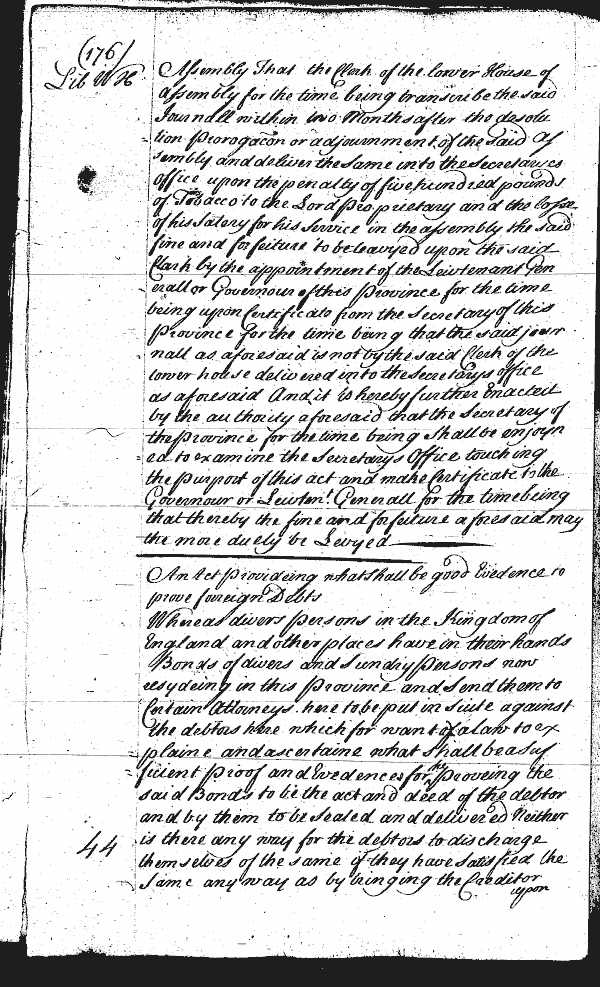 (176)
Lib WH
Assembly That the Clerk of the lower House of
assembly for the time being transcribe the said
Journall within two Months after the desolu
tion Prorogacōn or adjournment of the said As
sembly and deliver the same into the Secretaryes
office upon the penalty of five hundred pounds
of Tobacco to the Lord Proprietary and the losse
of his Salery for his Service in the assembly the said
fine and forfeiture to be leavyed upon the said
Clark by the appointment of the Leivtenant Gen
erall or Governour of this Province for the time
being upon Certificate from the Secretary of this
Province for the time being that the said jour
nall as aforesaid is not by the said Clerk of the
lower house delivered into the Secretarys office
as aforesaid And it is hereby further Enacted
by the authority aforesaid that the Secretary of
the Province for the time being Shall be enjoyn
ed to examine the Secretarys Office touching
the purport of this act and make Certificate to the
Governour or Leivten.t Generall for the time being
that thereby the fine and forfeiture aforesaid may
the more duely be Levyed
An Act Provideing what shall be good Evedence to
prove foreign Debts
Whereas divers Persons in the Kingdom of
England and other places have in their hands
Bonds of divers and Sundry Persons now
resydeing in this Province and send them to
Certain Attorneys here to be put in Suite against
the debtors here which for want of a law to ex
plaine and ascertaine what Shall be a suf
ficient Proof and Evedences for the Proveing the
said Bonds to be the act and deed of the debtor
and by them to be Sealed and delivered Neither
44
is there any way for the debtors to discharge
themselves of the same if they have satisfied the
same any way as by bringing the Creditor
upon